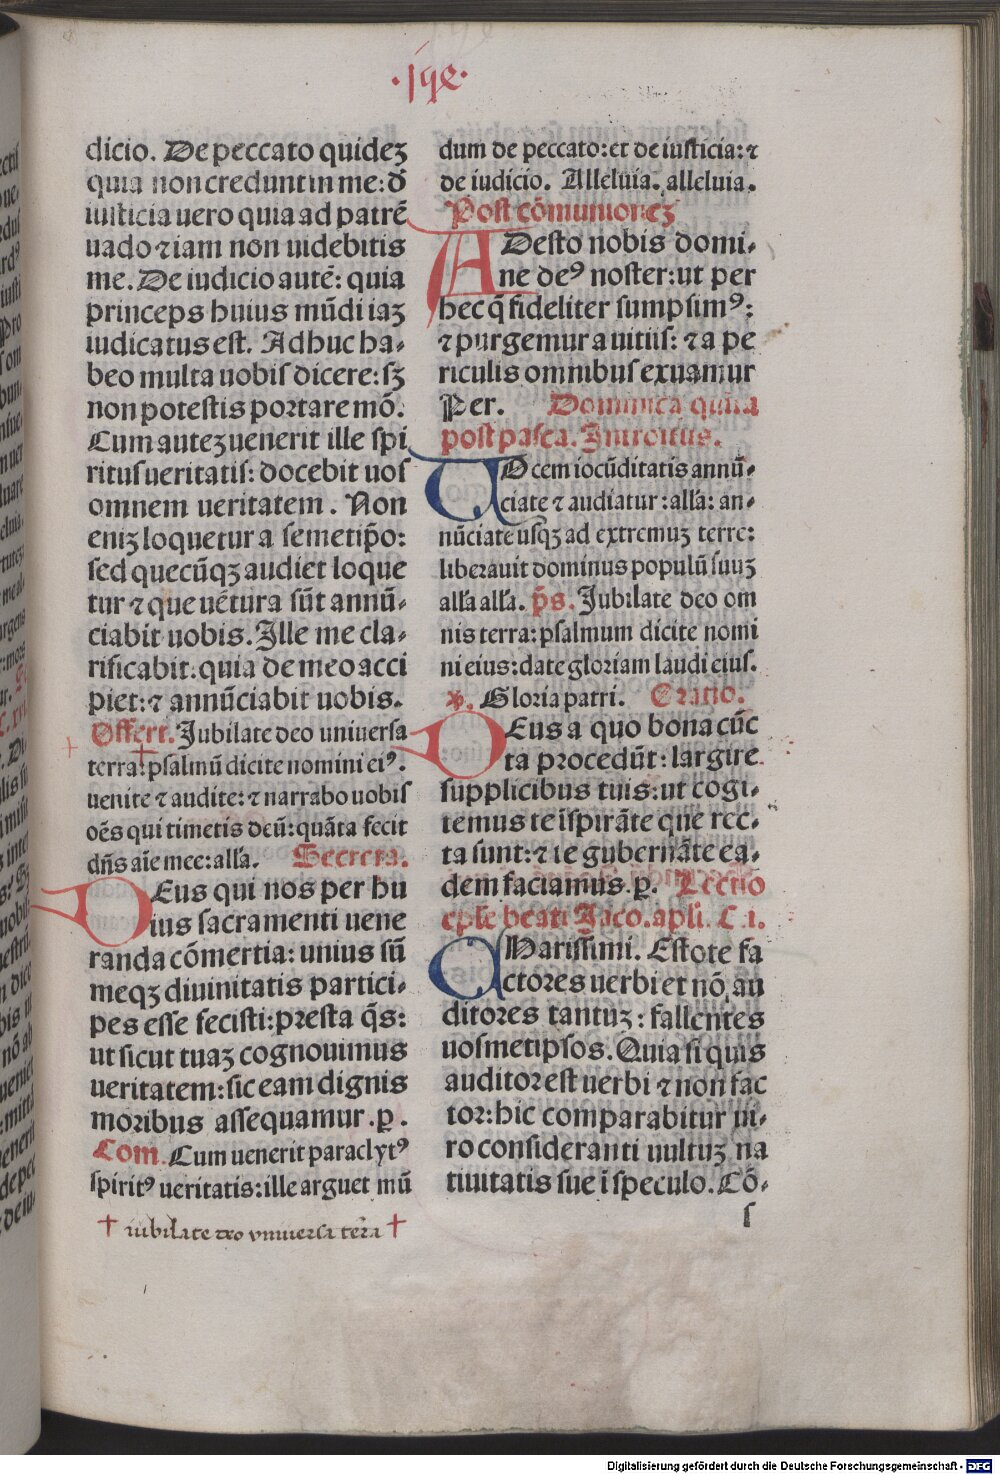 dicio. De peccato quideꝫ
quia non credunt in me: đ
iusticia uero quia ad patrē
uado ⁊ iam non uidebitis
me. De iudicio autē: quia
princeps huius mūdi iaꝫ
iudicatus est. Adhuc ha-
beo multa uobis dicere: sꝫ
non potestis portare mō.
Cum auteꝫ uenerit ille spi
ritus ueritatis: docebit uos
omnem ueritatem. Non
eniꝫ loquetur a semetip̄o:
sed quecūqꝫ audiet loque
tur ⁊ que uētura sūt annū-
ciabit uobis. Ille me cla-
rificabit: quia de meo acci
piet: ⁊ annūciabit uobis.
Offert. Jubilate deo uniuersa
terra: psalmū dicite nomini eiꝰ.
uenite ⁊ audite: ⁊ narrabo uobis
oēs qui timetis deū: quāta fecit
dn̄s aīe mee: alľa. Secreta.
DEus qui nos per hu
ius sacramenti uene
randa cōmertia: unius sū
meqꝫ diuinitatis partici-
pes esse fecisti: presta q̄s:
ut sicut tuaꝫ cognouimus
ueritatem: sic eam dignis
moribus assequamur. ꝑ.
Com. Cum uenerit paraclytꝰ
spiritꝰ ueritatis: ille arguet mū
† iubilate deo vniuersa terra †
dum de peccato: et de iusticia: ⁊
de iudicio. Alleluia. alleluia.
Post cōmunioneꝫ
ADesto nobis domi-
ne deꝰ noster: ut per
hec q̄ fideliter sumpsimꝰ:
⁊ purgemur a uitiis: ⁊ a pe
riculis omnibus exuamur
Per. Dominica quīta
post pasca. Introitus.
UOcem iocūditatis annū-
ciate ⁊ audiatur: alľa: an-
nūciate usqꝫ ad extremuꝫ terre:
liberauit dominus populū suuꝫ
alľa alľa. p̄s. Jubilate deo om
nis terra: psalmum dicite nomi
ni eius: date gloriam laudi eius.
℣. Gloria patri. Oratio.
DEus a quo bona cūc
ta procedūt: largire
supplicibus tuis: ut cogi-
temus te īspirāte que rec-
ta sunt: ⁊ te gubernāte ea-
dem faciamus. ꝑ. Lectio
epľe beati Jaco. apľi. C. i.
CHarissimi. Estote fa
ctores uerbi et nō au
ditores tantuꝫ: fallentes
uosmetipsos. Quia si quis
auditor est uerbi ⁊ non fac
tor: hic comparabitur ui-
ro consideranti uultuꝫ na
tiuitatis sue ī speculo. Cō-
s
Digitalisierung gefördert durch die Deutsche Forschungsgemeinschaft - DFG